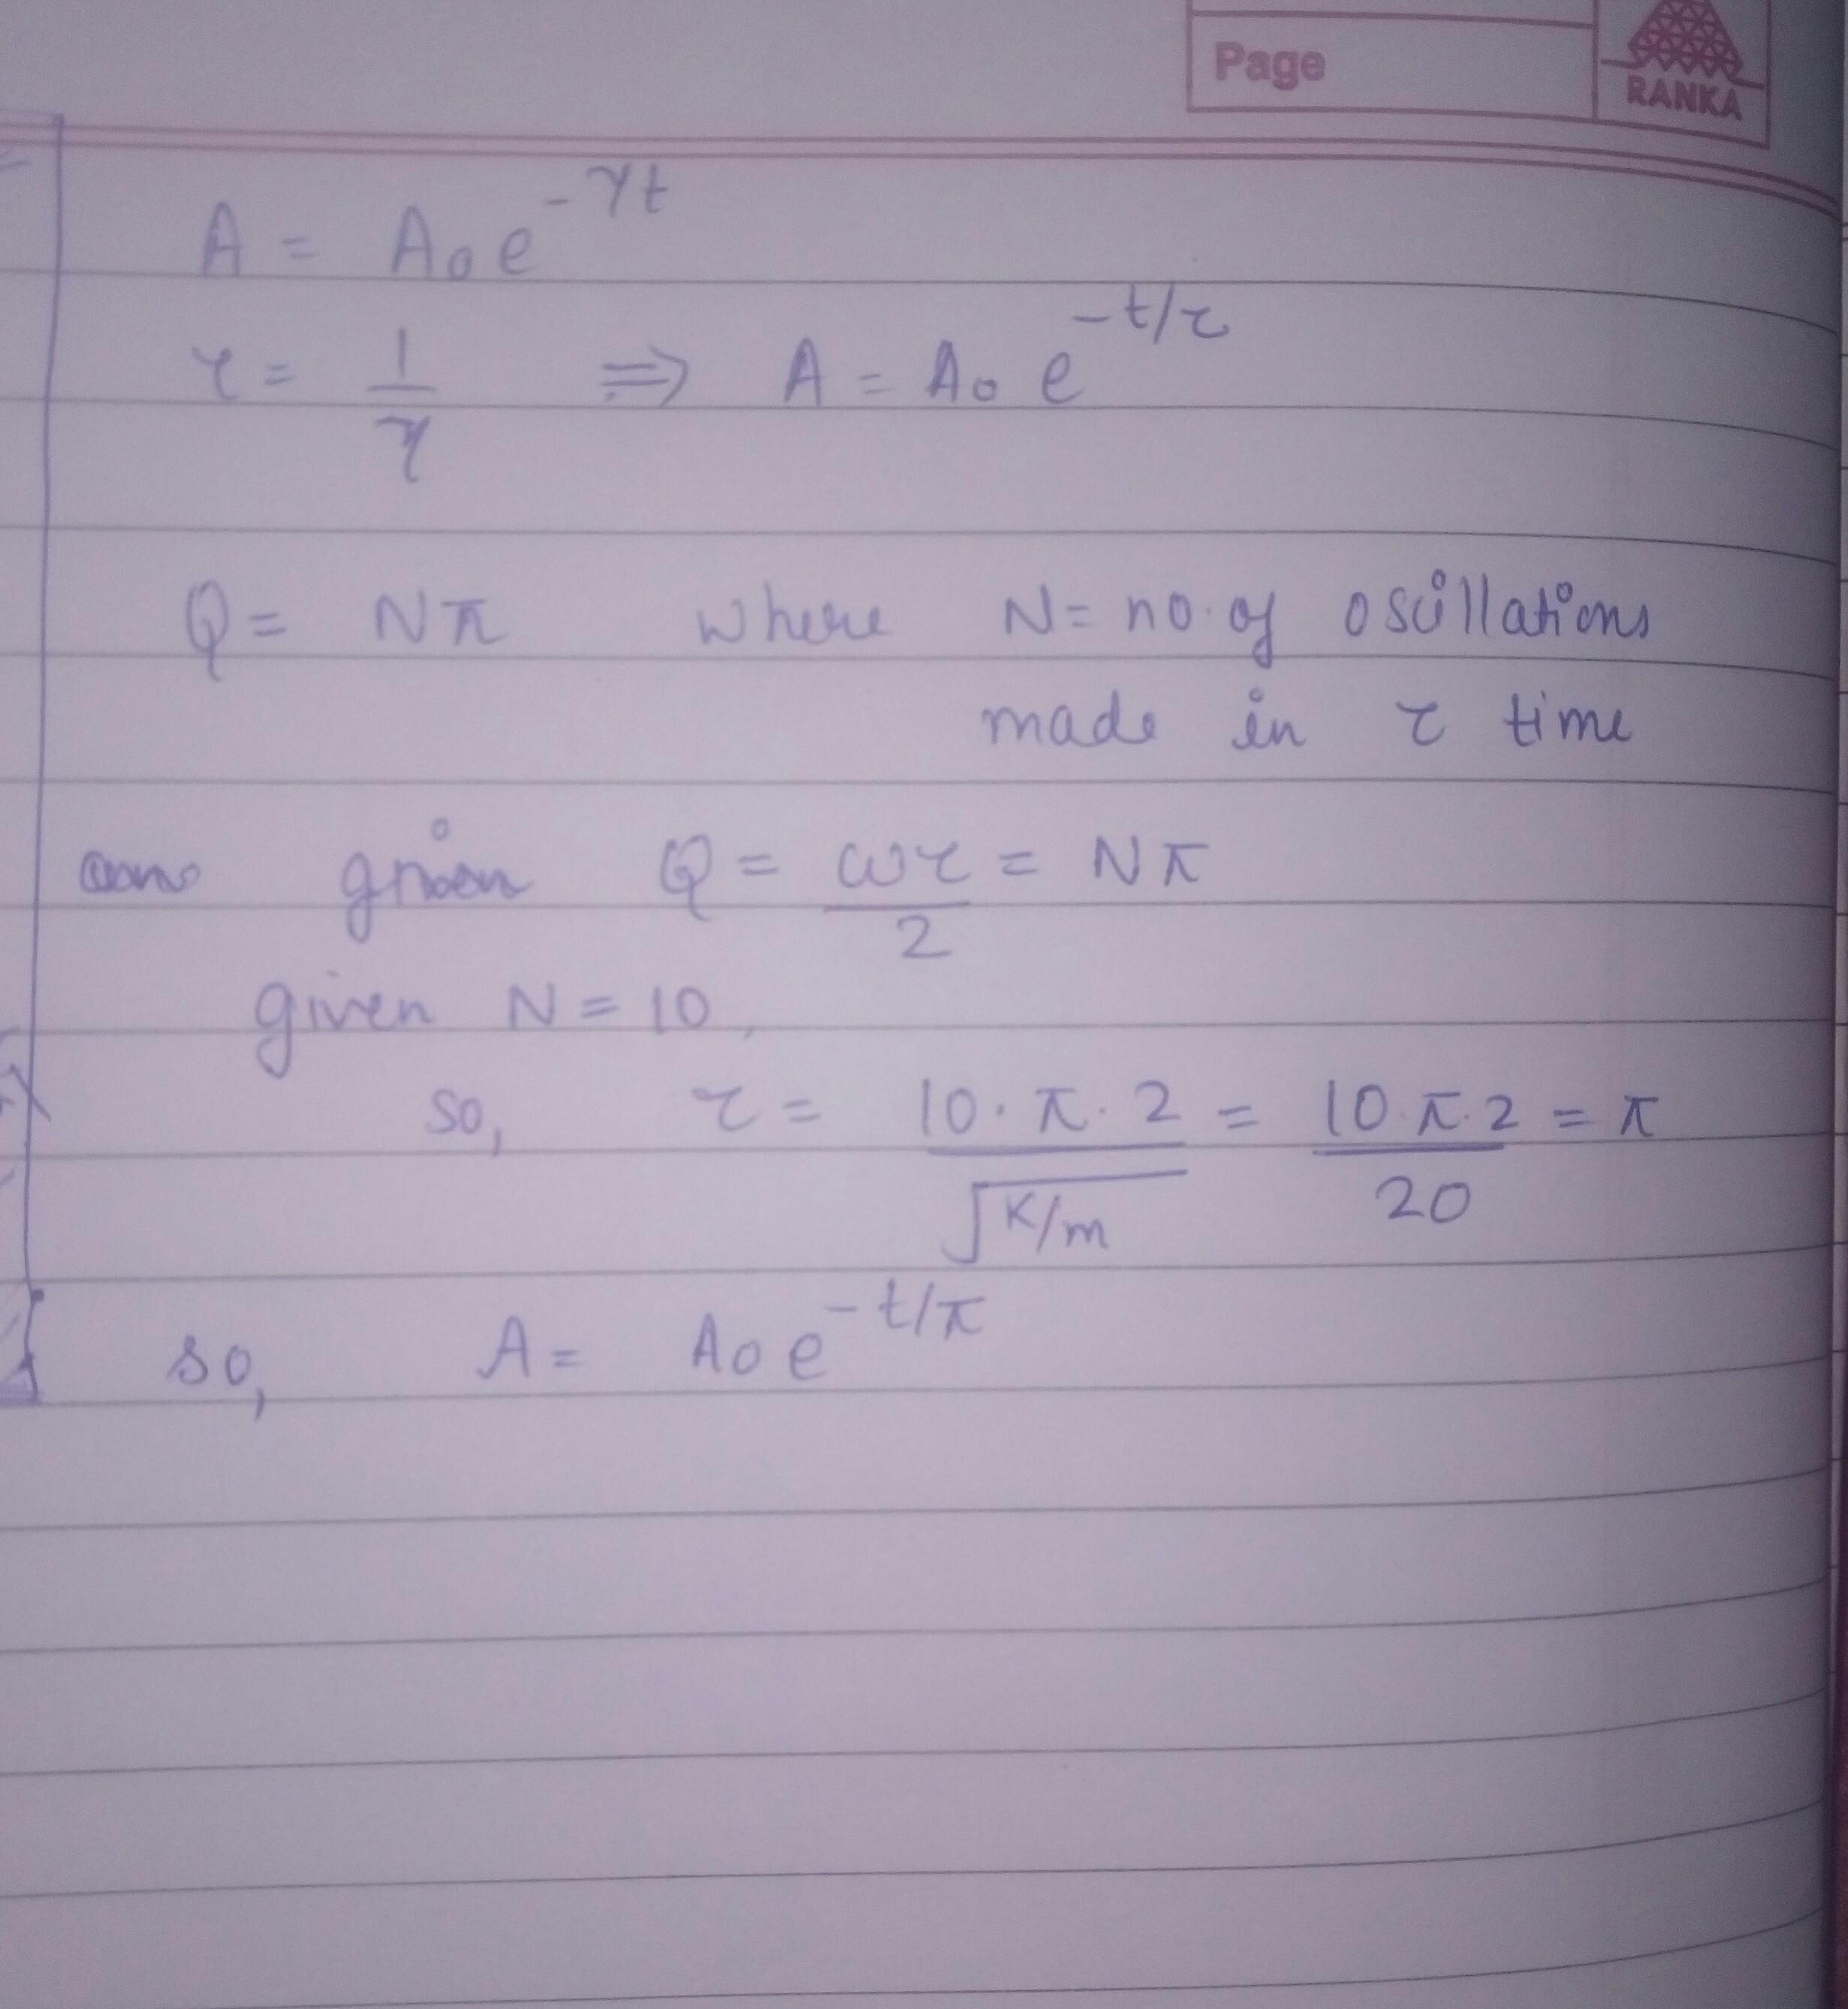 Page
RANKA
A = A₀ e^{-γt}
τ = 1/γ ⇒ A = A₀ e^{-t/τ}
Q = Nπ where N = no. of oscillations
made in τ time
given Q = ωτ/2 = Nπ
given N = 10,
so, τ = 10·π·2/√(K/m) = 10·π·2/20 = π
so, A = A₀ e^{-t/π}